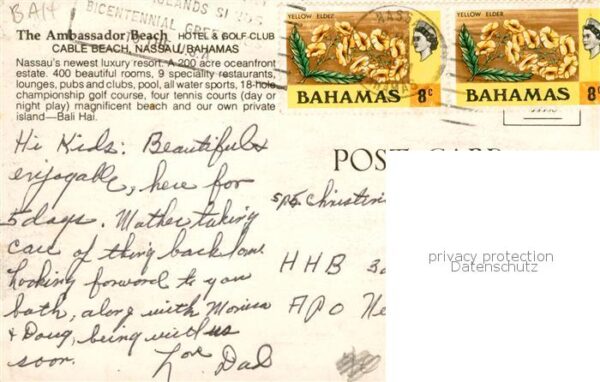 BAH
ISLANDS
BICENTENNIAL GREE
U.S.A
The Ambassador Beach HOTEL & GOLF CLUB
CABLE BEACH, NASSAU, BAHAMAS
Nassau's newest luxury resort. A 200 acre oceanfront
estate. 400 beautiful rooms, 9 speciality restaurants,
lounges, pubs and clubs, pool, all water sports, 18-hole
championship golf course, four tennis courts (day or
night play) magnificent beach and our own private
island—Bali Hai.
YELLOW ELDER
BAHAMAS 8c
YELLOW ELDER
BAHAMAS 8c
NASSAU
BAHAMAS
POST CARD
Hi Kids: Beautiful &
enjoyable, here for
5 days. Mother taking
care of thing back home
Looking forward to you
both, along with Monica
& Doug, being with us
soon. Love Dad
Sp5 Christin
HHB 3
APO Ne
privacy protection
Datenschutz